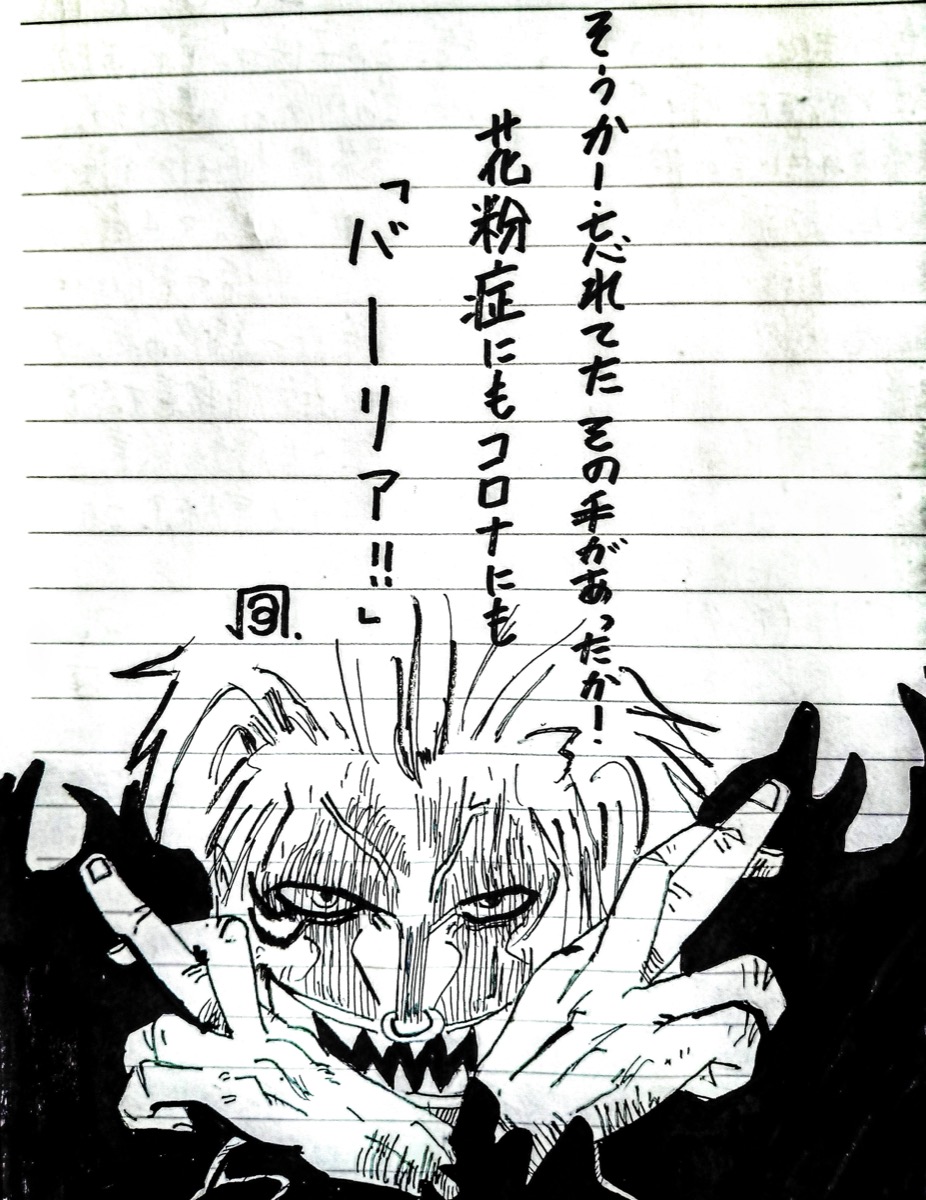 そうかー忘れてたその手があったかー
花粉症にもコロナにも
「バーリア!!」